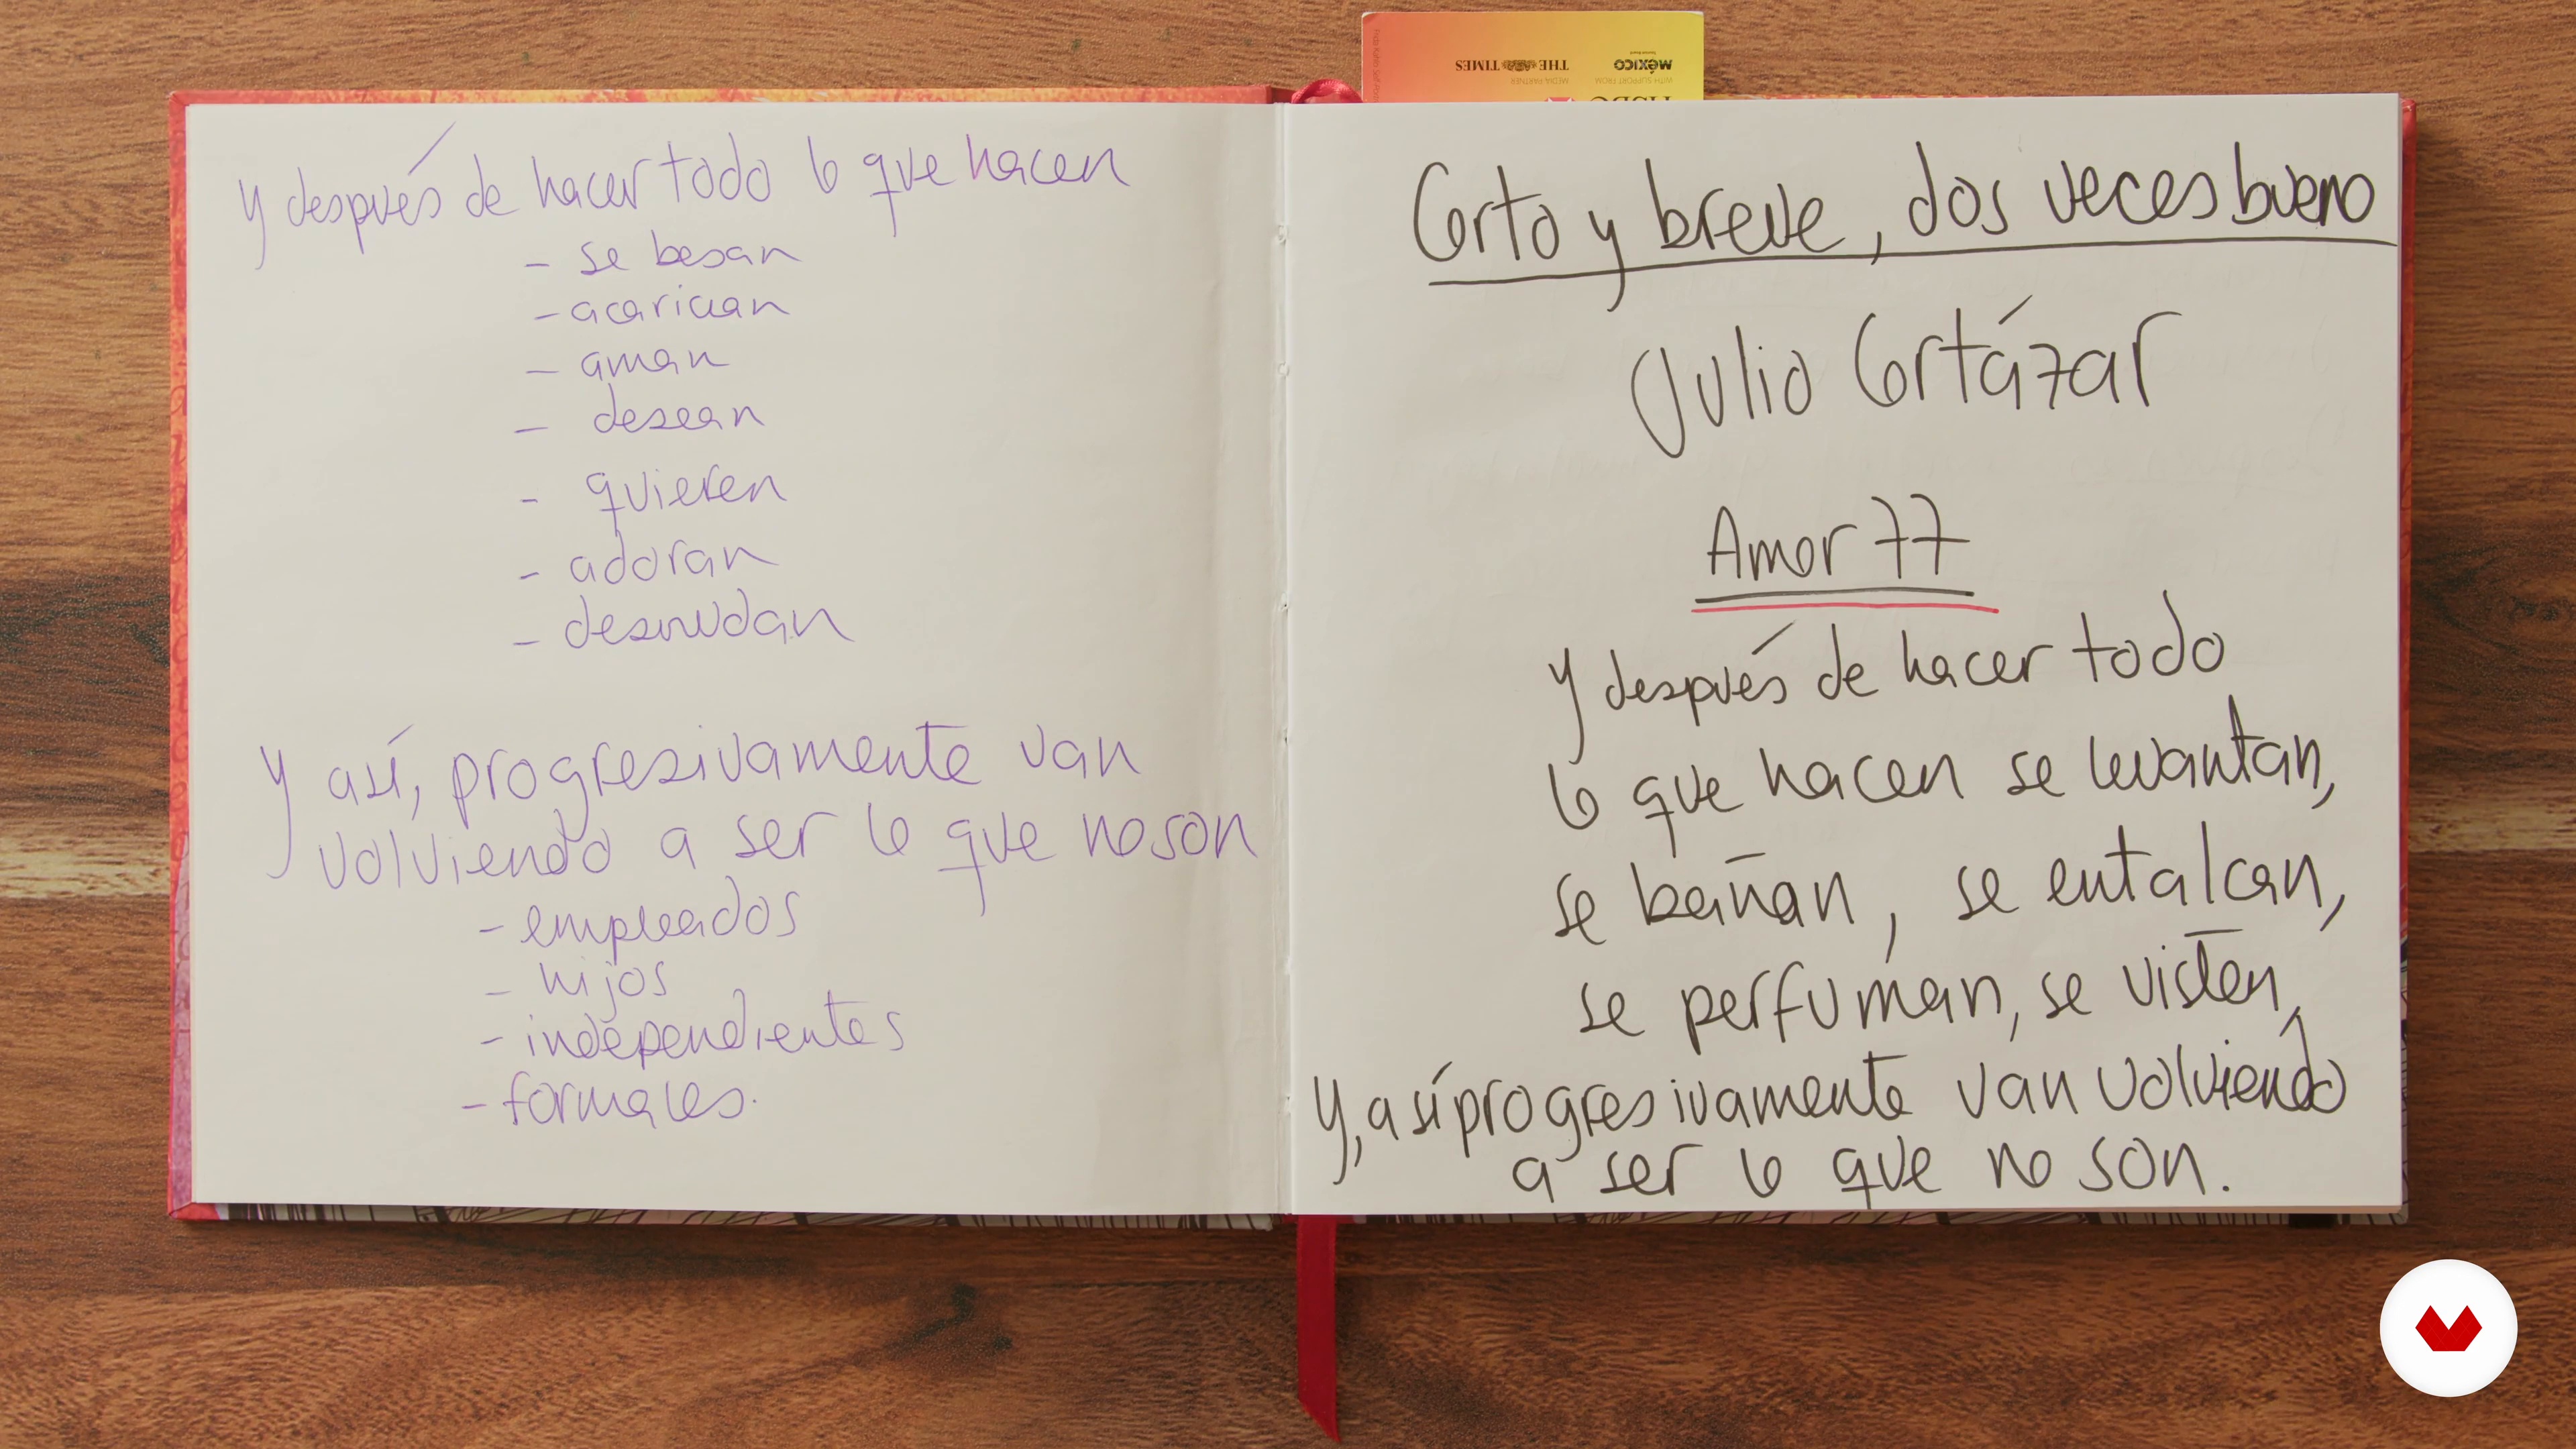 Y después de hacer todo lo que hacen
- se besan
- acarician
- aman
- desean
- quieren
- adoran
- desnudan
Y así, progresivamente van
volviendo a ser lo que no son
- empleados
- hijos
- independientes
- formales.
THE TIMES
MEDIA PARTNER
MÉXICO
WITH SUPPORT FROM
HSBC
Corto y breve, dos veces bueno
Julio Cortázar
Amor 77
Y después de hacer todo
lo que hacen se levantan,
se bañan, se entalcan,
se perfuman, se visten,
Y, así progresivamente van volviendo
a ser lo que no son.